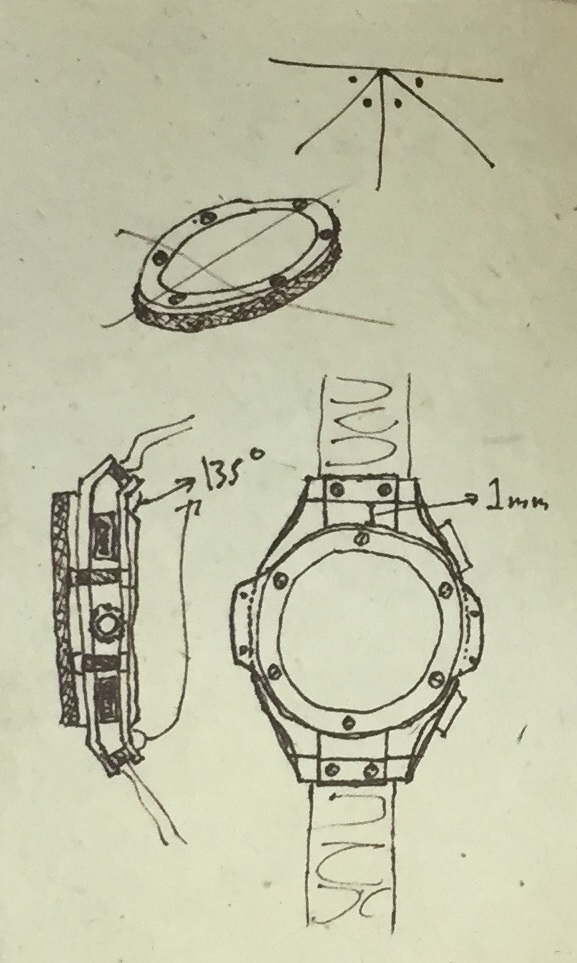 135°
1mm